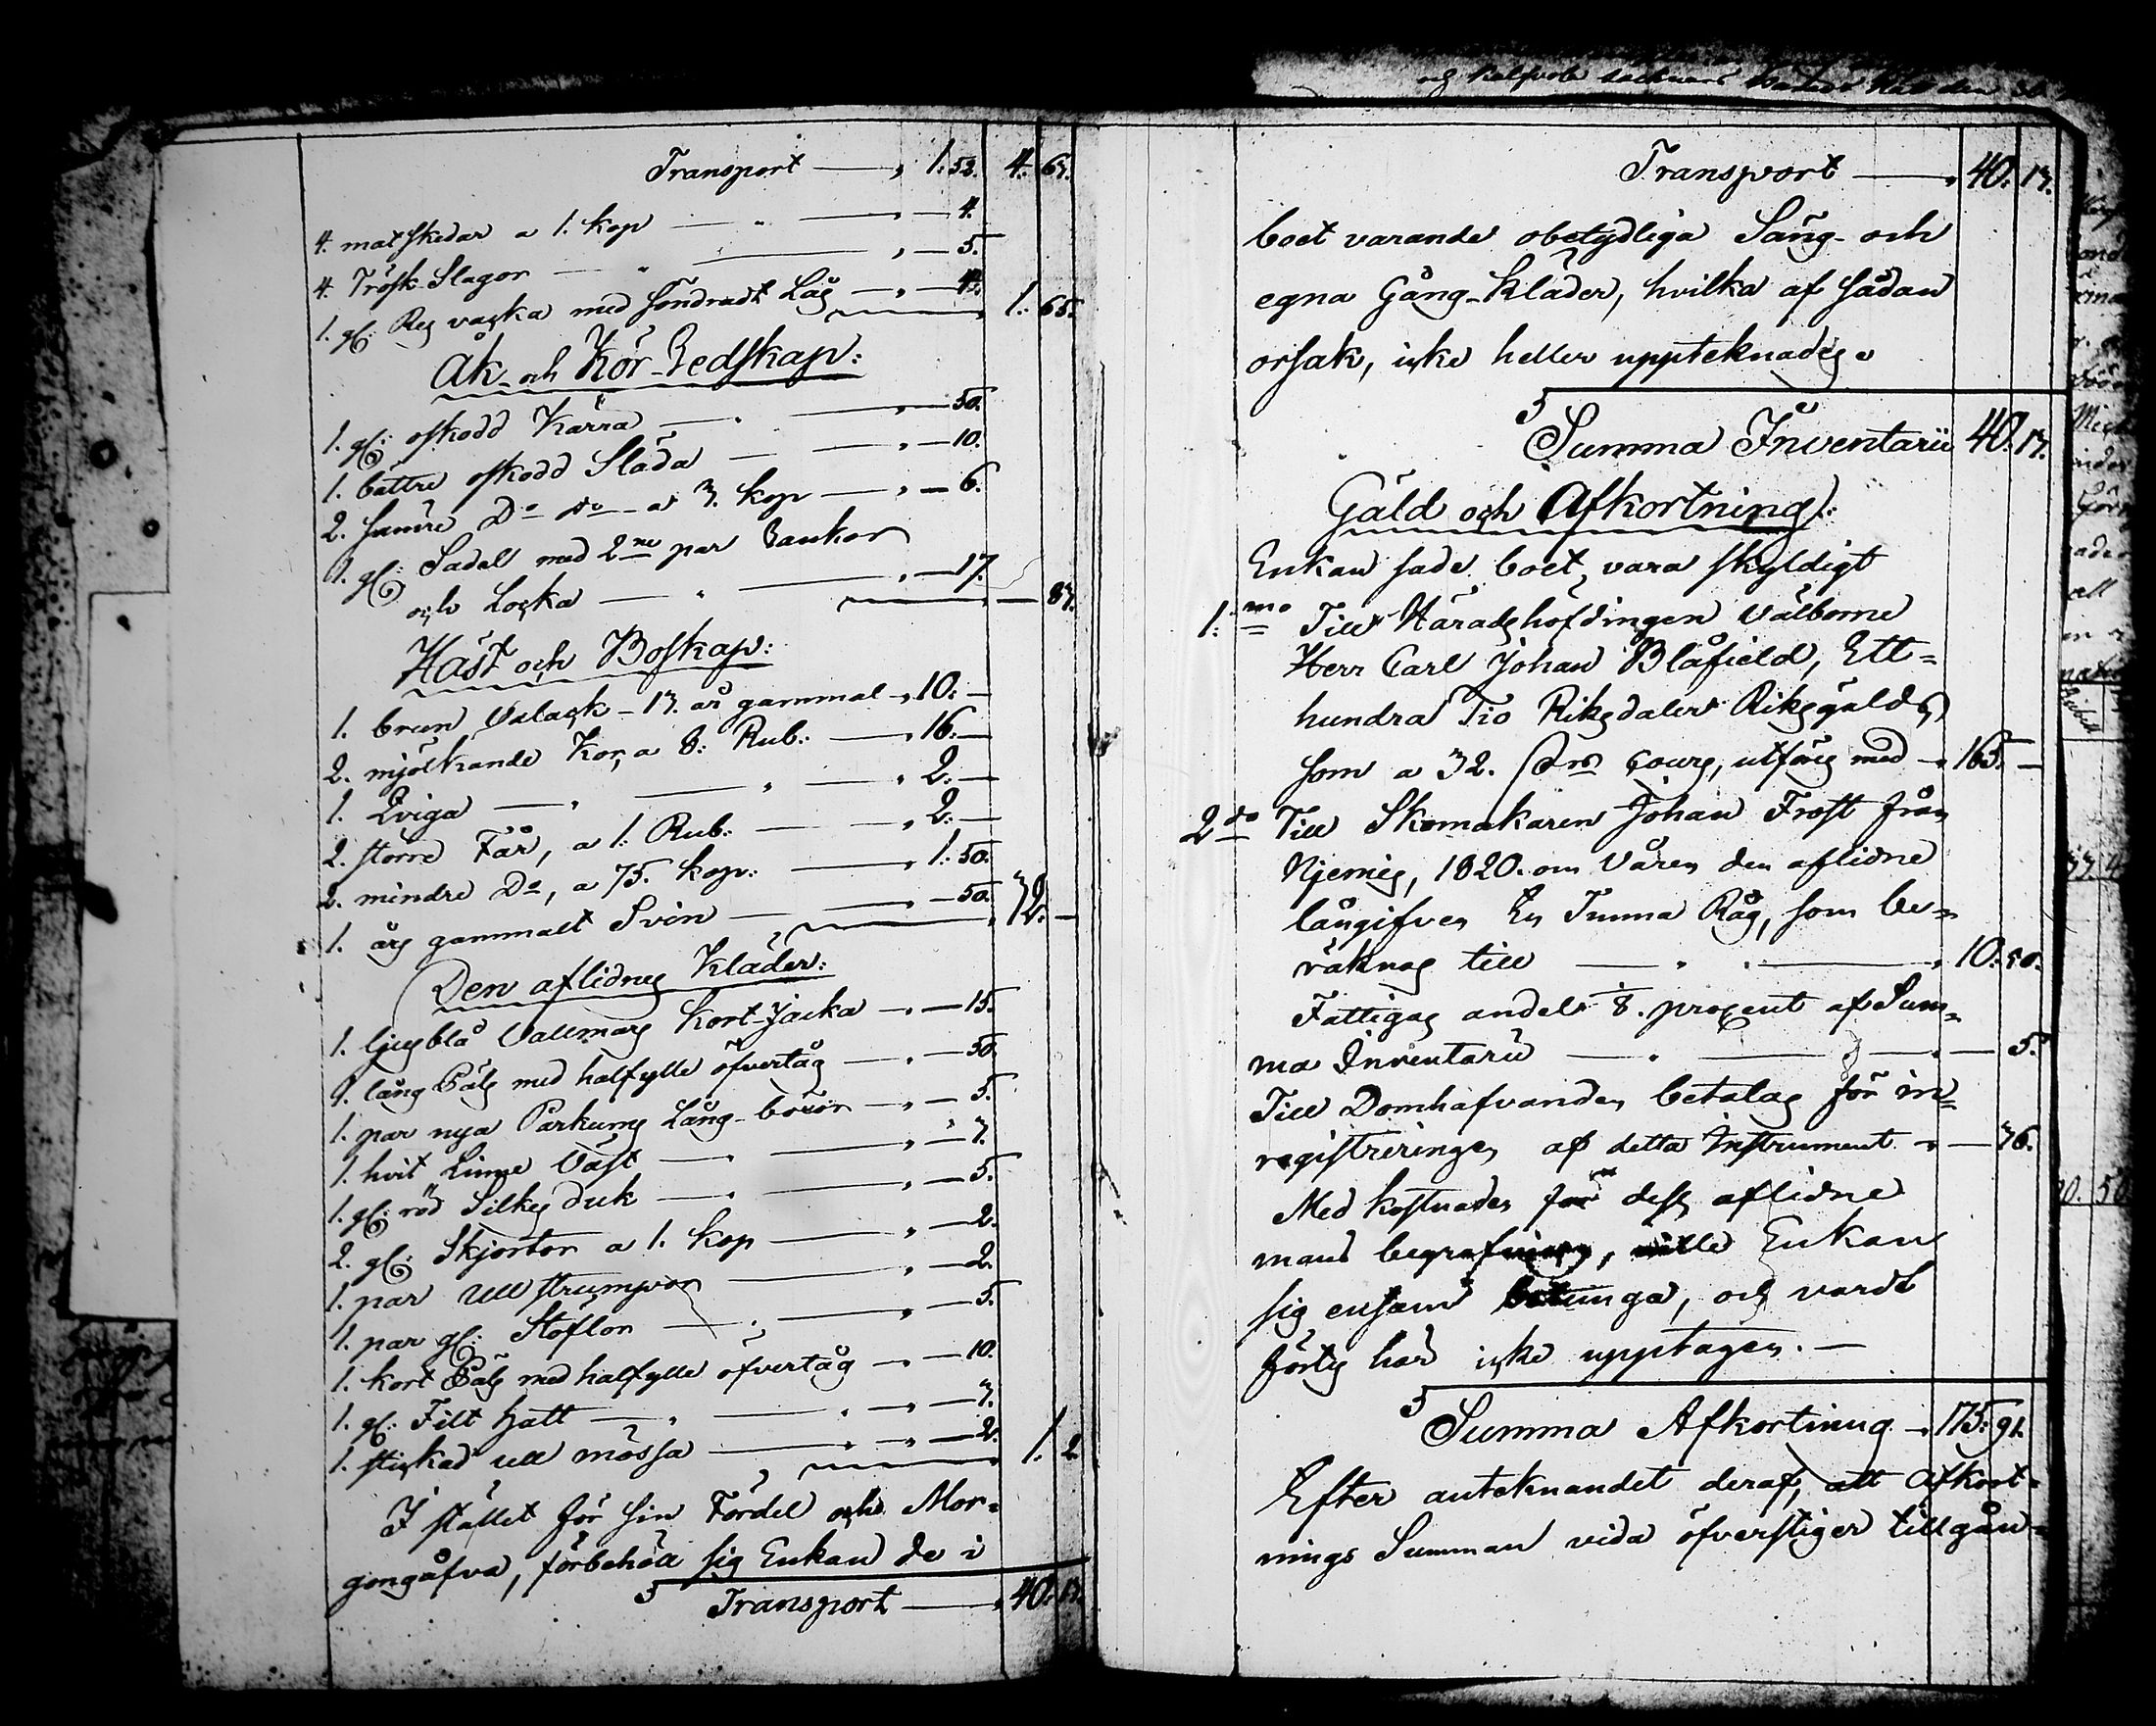 Transport — „ 1. 52. 4. 63.
4. matskedar a 1. kop — „ — „ — 4.
4. Trösk-Slagor — „ — „ — 5.
1. gl: Reg vaska med söndradt Låg — „ — 4. 1. 65.
Åk- och Kör-Redskap:
1. gl: oskodd Kärra — „ — „ — 50.
1. bättre oskodd Släda — „ — 10.
2. sämre Do do a 3. kop — „ — 6.
1. gl: Sadel med 2ne par Rankor
och Locka — „ — „ — 17. — 83.
Häst och Boskap:
1. brun Valack - 13. år gammal „ 10. —
2. mjölkande Kor, a 8: Rub: — „ 16. —
1. Qviga — „ — „ — „ 2. —
2. större Får, a 1. Rub: — „ 2. —
2. mindre Do, a 75. kop: — „ 1. 50.
1. års gammalt Svin — „ — „ — 50. 32. —
Den aflidnes Kläder:
1. ljusblå Vallmars Kort-Jacka — „ — 15.
1. lång Päls med halfylle öfvertåg — „ — 50.
1. par nya Parkums Lång-boxor — „ — 5.
1. hvit Linne Väst — „ — „ — 3.
1. gl: röd Silkes duk — „ — „ — 5.
2. gl: Skjortor a 1. kop — „ — 2.
1. par Ull strumpor — „ — 2.
1. par gl: Stöflor — „ — „ — 5.
1. kort Päls med halfylle öfvertåg — „ — 10.
1. gl: Filt hatt — „ — „ — 3.
1. stickad ull mössa — „ — „ — 2. 1. 2
I stället för sin Fördel och Mor=
gongåfva, förbehöll sig Enkan de i
Transport — „ 40. 13.
Transport — „ 40. 13.
boet varande obetydliga Säng- och
egna Gång-Kläder, hvilka af sådan
orsak, icke heller uppteknades.
Summa Inventarii 40. 13.
Gäld och Afkortning:
Enkan sade boet, vara skyldigt
1.mo Till Häradshöfdingen Välborne
Herr Carl Johan Blåfield, Ett=
hundra Tio Riksdaler Riksgälds,
som a 32. Cours, utförs med „ 165. —
2do Till Skomakaren Johan Frost från
Njemis, 1820. om Våren den aflidne
långifven En Tunna Råg, som be=
räknas till — „ — „ 10. 50.
Fattigas andel 1/8. procent af Sum=
ma Inventarii — „ — „ — 5.
Till Domhafvanden betalas för in=
registreringen af detta Instrument „ — 36.
Med kostnaden för dess aflidne
mans begrafning, ville Enkan
sig ensam betunga, och vardt
förty här icke upptagen. —
Summa Afkortning „ 175. 91.
Efter anteknandet deraf, att Afkort=
nings Summan vida öfverstiger tillgån=